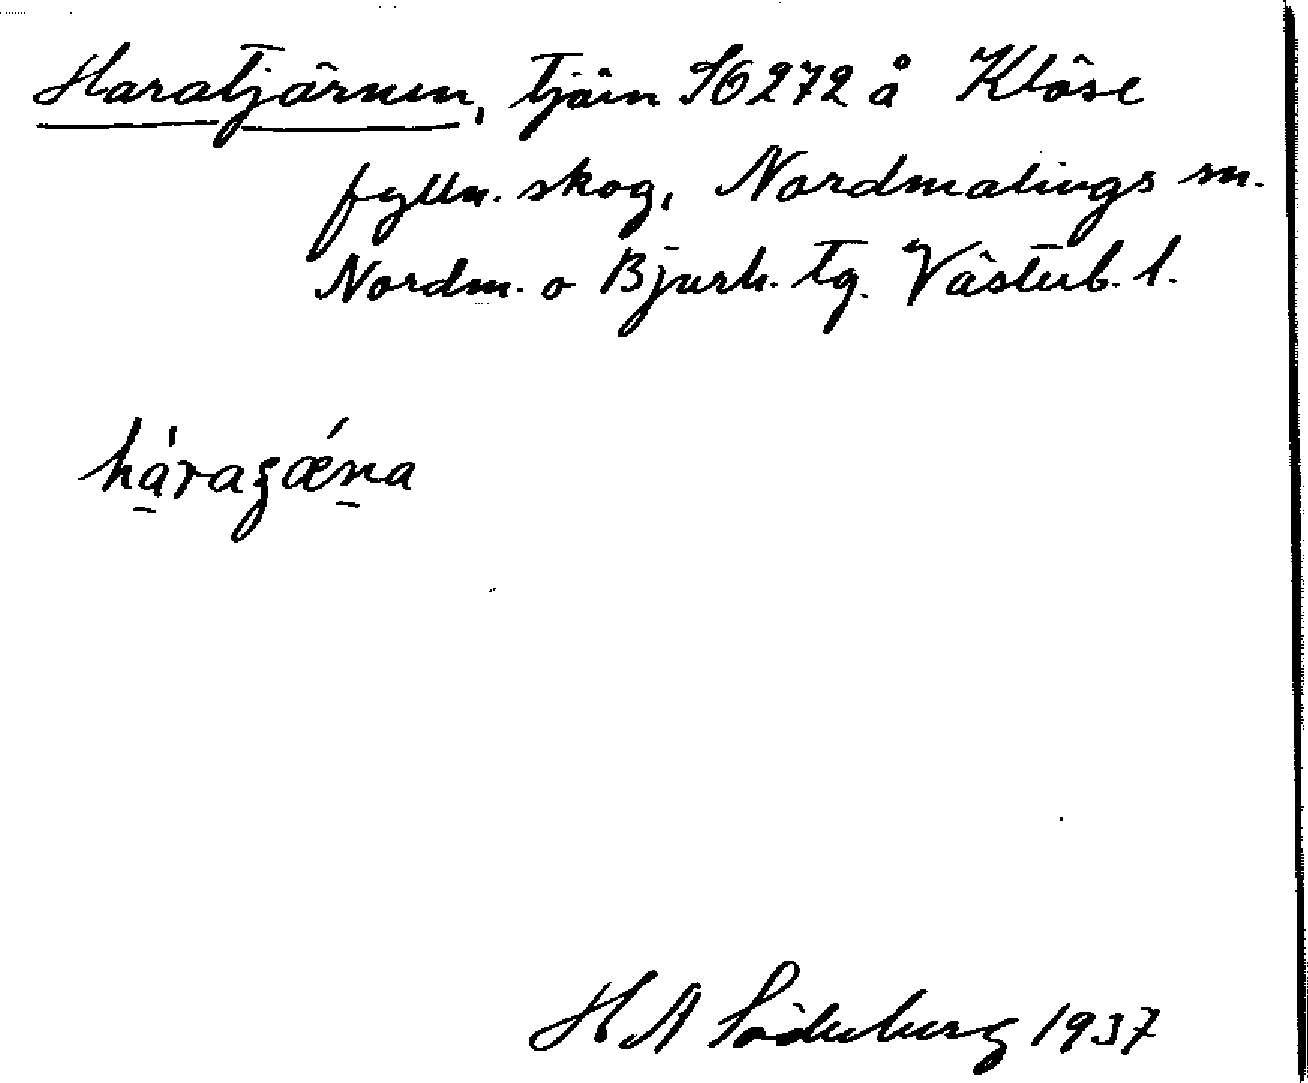 Haratjärnen, tjärn SO 272 å Klöse
fylln. skog, Nordmalings sn.
Nordm. o Bjurh. tg. Västerb. l.
håragǽna
H A Söderberg 1937